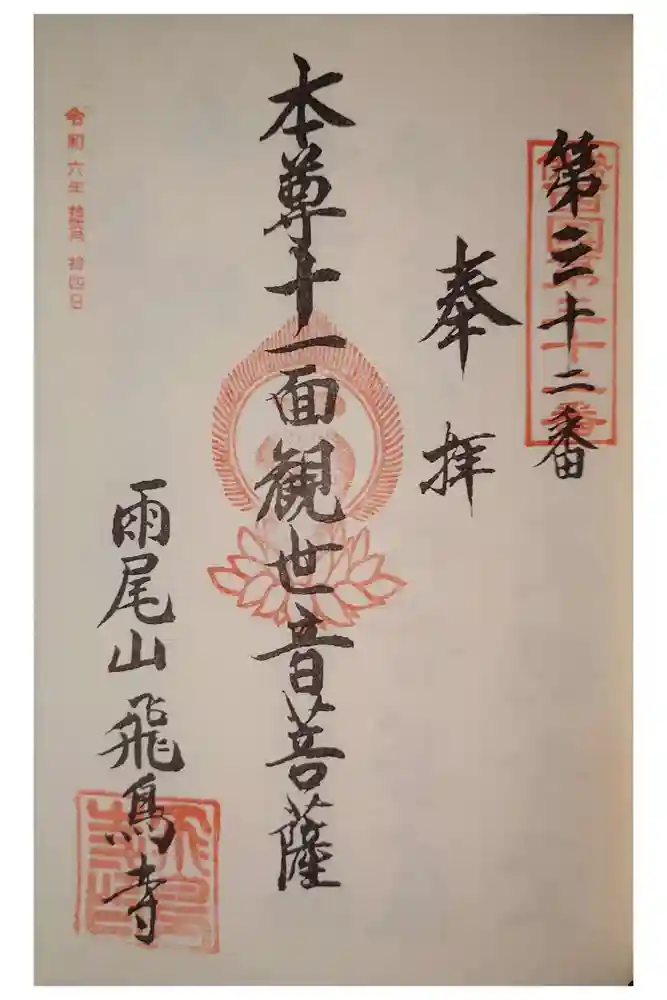 第三十二番
奉拝
本尊十一面観世音菩薩
雨尾山飛鳥寺
令和六年拾弐月拾四日